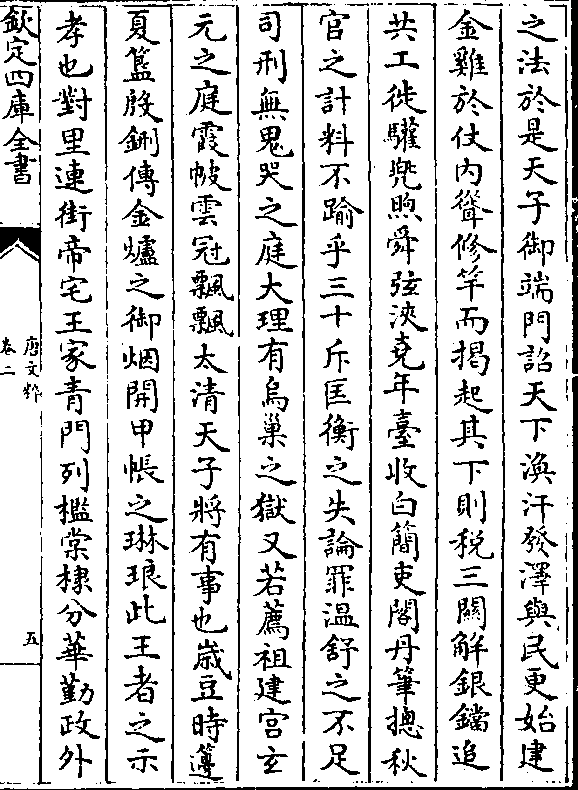 之法於是天子御端門詔天下渙汗發澤與民更始建
金雞於仗内聳修竿而揭起其下則税三闗解銀鐺追
共工徙驩兜煦舜弦浹堯年臺收白簡吏閣丹筆摠秋
官之計料不踰乎三十斥匡衡之失論罪温舒之不足
司刑無鬼哭之庭大理有烏巢之獄又若薦祖建宫玄
元之庭霞帔雲冠飄飄太清天子將有事也嵗豆時籩
夏簋殷鉶傳金爐之御烟開甲帳之琳琅此王者之示
孝也對里連街帝宅王家青門列檻棠棣分華勤政外
欽定四庫全書
唐文粹
卷二
五